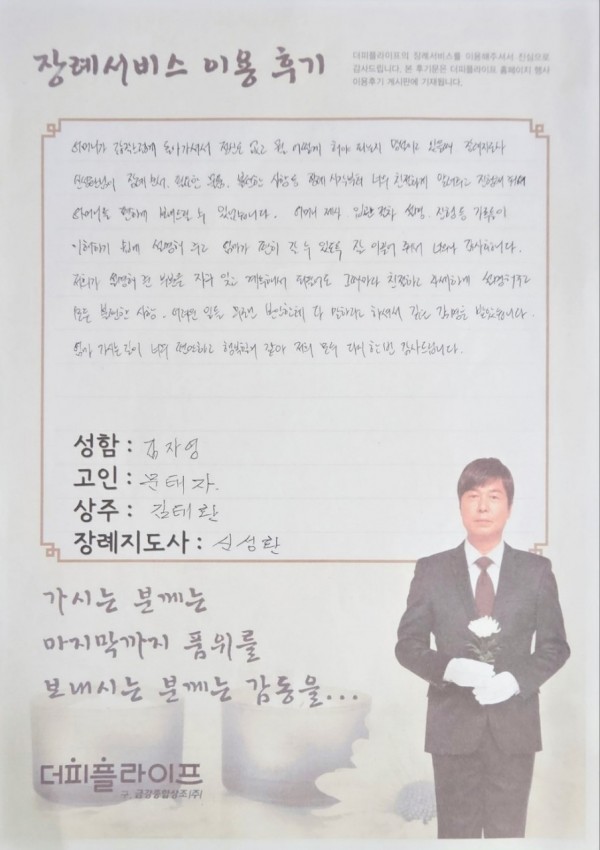 장례서비스 이용 후기
더피플라이프의 장례서비스를 이용해주셔서 진심으로
감사드립니다. 본 후기문은 더피플라이프 홈페이지 행사
이용후기 게시판에 기재됩니다.
어머니가 갑작스럽게 돌아가셔서 정신도 없고 어떻게 해야 되는지 있을때 장례지도사
신성환님이 장례 불편한 사항 등 장례 시작부터 너무 친절하게 진행해
어머니를 편하게 보내드릴 수 있었습니다. 어머니 입관 절차 설명, 진행 등 가족들이
이해하기 쉽게 설명해 주고 엄마가 편히 갈 수 있도록 잘 이끌어 주셔서 너무나 감사합니다.
저희가 설명해 준 부분을 자꾸 잊고 계속해서 그때마다 친절하고 자세하게 설명해주고
모든 불편한 사항, 어려운 일들 다 말하라고 하셔서 깊은 감명을 받았습니다.
엄마 가시는길이 너무 편안하고 행복했던거 같아 저희 모두 다시 한 번 감사드립니다.
성함 : 김자영
고인 : 문태자.
상주 : 김태환
장례지도사 : 신성환
가시는 분께는
마지막까지 품위를
보내시는 분께는 감동을...
더피플라이프
구. 금강종합상조(주)